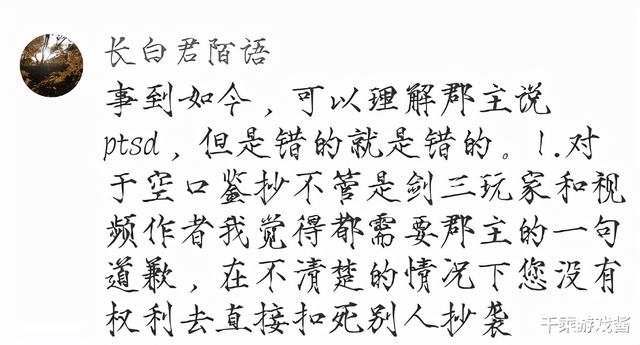 长白君陌语
事到如今，可以理解郡主说
ptsd，但是错的就是错的。1.对
于空口鉴抄不管是剑三玩家和视
频作者我觉得都需要郡主的一句
道歉，在不清楚的情况下您没有
权利去直接扣死别人抄袭
千乘游戏酱